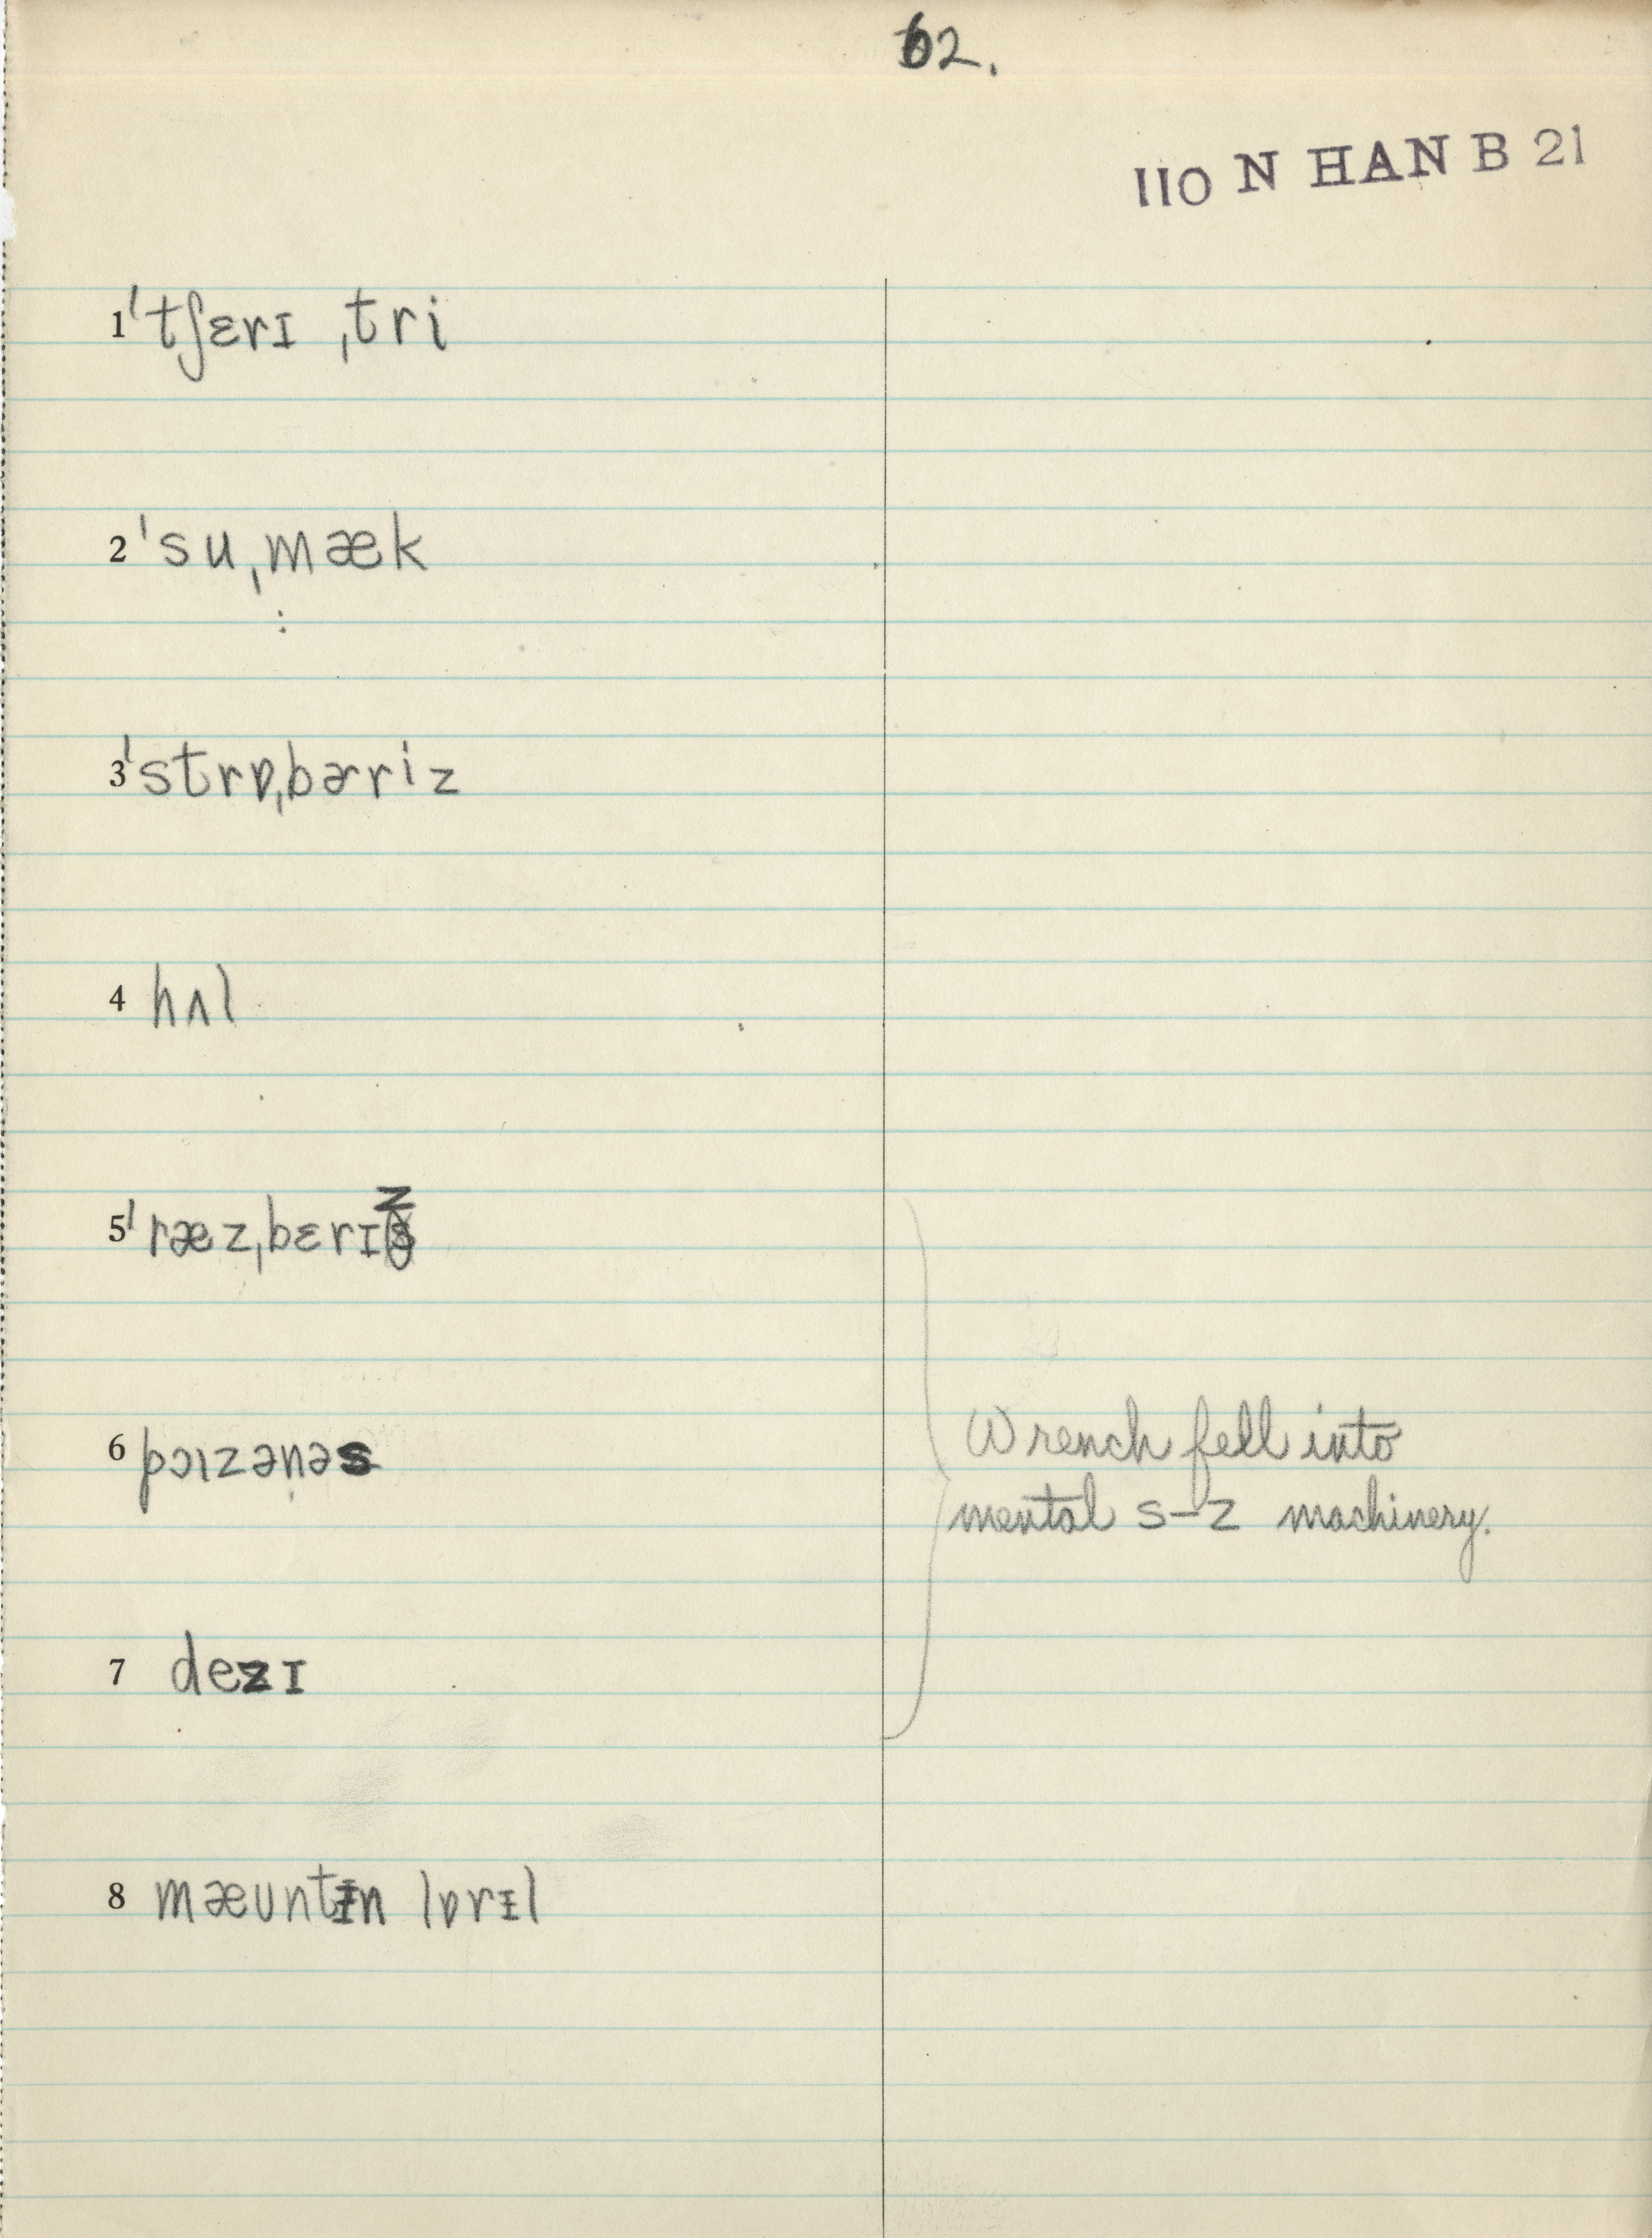 62.
110 N HAN B 21
1 ˈtʃɛrɪ ˌtri
2 ˈsuˌmæk
3 ˈstrɒˌbɚriz
4 hʌl
5 ˈræzˌbɛrɪz
6 pɔɪzənəs
7 dezɪ
8 mæʊntɪn lɒrɪl
Wrench fell into
mental s-z machinery.